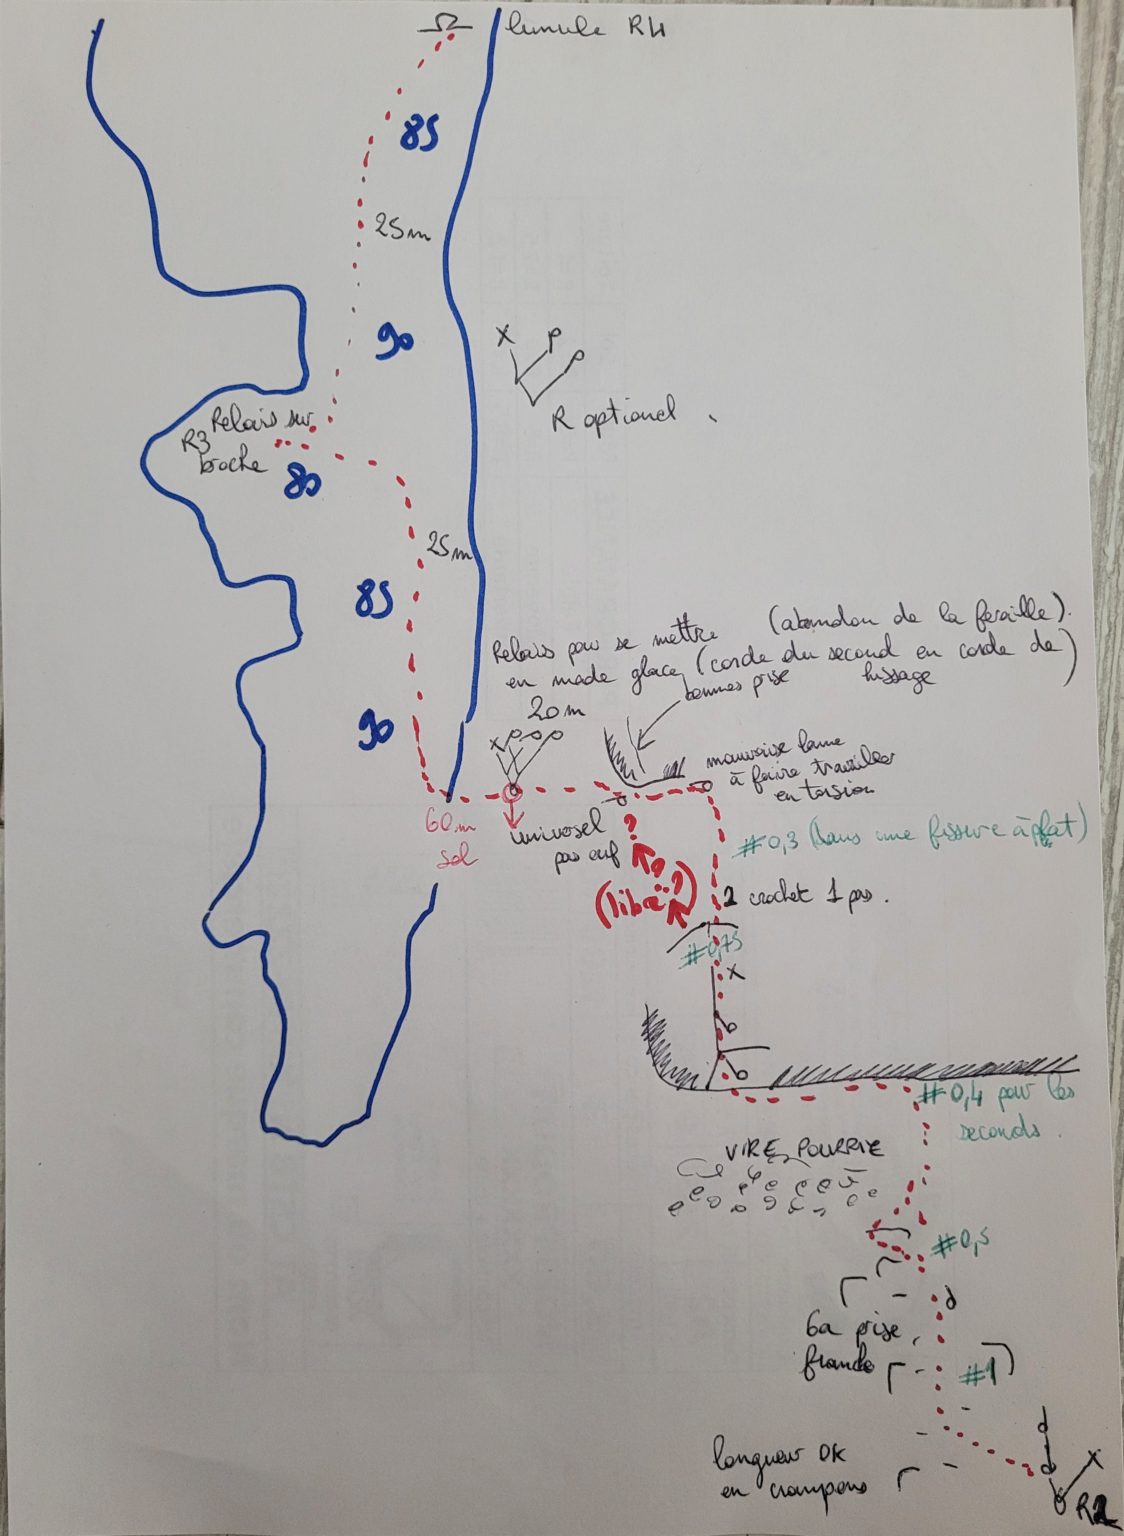 lunule R4
85
25m
90
R optionel
Relais sur
R3
broche
80
25m
85
Relais pour se mettre (abandon de la feraille).
en mode glace (corde du second en corde de)
hissage
bonnes prise
20m
90
mauvaise lame
à faire travailler
en torsion
60m
sol
universel
pas enf
?
#0,3 (dans une fissure à plat)
(libre?)
2 crochet 1 pas.
#0,75
#0,4 pour les
seconds.
VIRE POURRIE
#0,5
6a prise
franche
#1
longueur OK
en crampons